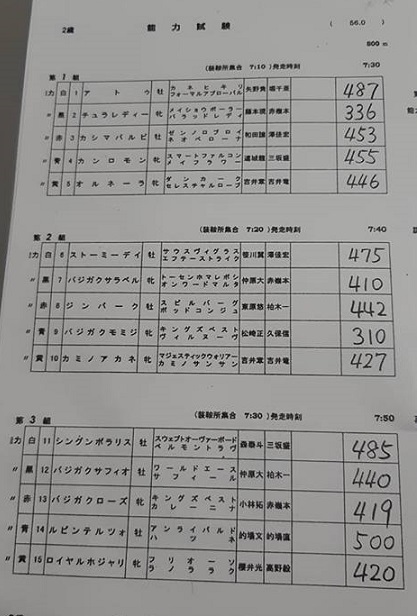 2歳 能力試験 ( 56.0 )
800m
第1組 (装鞍所集合 7:10) 発走時刻 7:30
能力 白 1 アトゥ 牡 カネヒキリ フォーマルアプローバル 矢野貴 堀千亜 487
〃 黒 2 チュラレディー 牝 メイショウボーラー バラッドレディ 藤本現 赤嶺本 336
〃 赤 3 カシマバルビ 牡 ゼンノロブロイ ネオベローナ 和田譲 澤佳宏 453
〃 青 4 カンロモン 牝 スマートファルコン メイフラワー 三坂盛 455
〃 黄 5 オルネーラ 牝 ダンカーク セレスチャルローブ 吉井章 吉井竜 446
第2組 (装鞍所集合 7:20) 発走時刻 7:40
能力 白 6 ストーミーデイ 牡 サウスヴィグラス エフテーストライク 笹川翼 澤佳宏 475
〃 黒 7 バジガクサラベル 牝 トーセンホマレボシ オンワードマルタ 仲原大 赤嶺本 410
〃 赤 8 ジンバーク 牡 スピルバーグ ポッドコンジュ 東原悠 柏木一 442
〃 青 9 バジガクモミジ 牝 キングズベスト ヴィルヌーヴ 松崎正 久保信 310
〃 黄 10 カミノアカネ 牝 マジェスティックウォリアー カミノサンサン 吉井章 吉井竜 427
第3組 (装鞍所集合 7:30) 発走時刻 7:50
能力 白 11 シングンポラリス 牡 スウェプトオーヴァーボード ベルモントラヴ 森泰斗 三坂盛 485
〃 黒 12 バジガクサフィオ 牡 ワールドエース サフィール 仲原大 柏木一 440
〃 赤 13 バジガクローズ 牝 キングズベスト カレーニナ 小林拓 赤嶺本 419
〃 青 14 ルピンテルツォ 牡 アンライバルド ハツネ 的場文 的場直 500
〃 黄 15 ロイヤルホジャリ 牝 フリオーソ ラノララク 櫻井光 高野毅 420